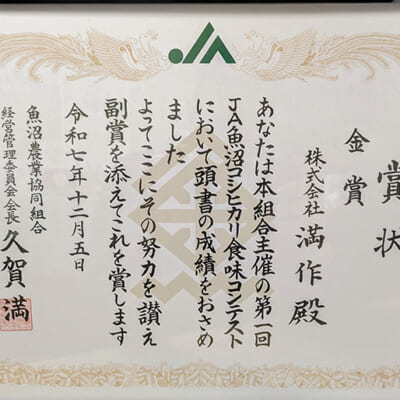 JA
賞状
金賞
株式会社 満作殿
あなたは本組合主催の第一回
JA魚沼コシヒカリ食味コンテスト
において頭書の成績をおさめ
ました
よってここにその努力を讃え
副賞を添えてこれを賞します
令和七年十二月五日
魚沼農業協同組合
経営管理委員会会長 久賀 満